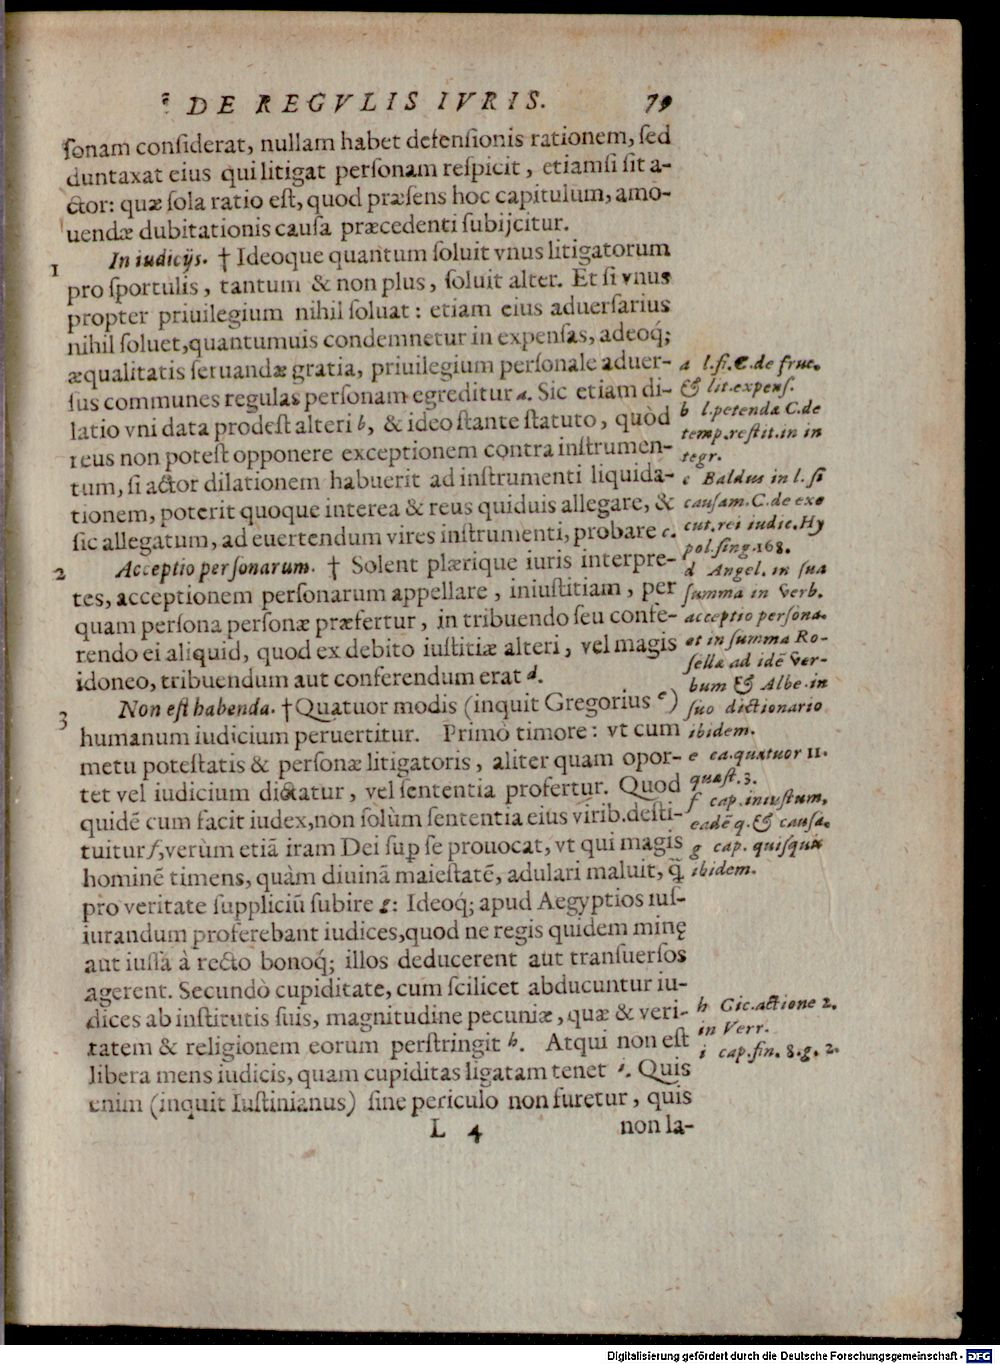 DE REGVLIS IVRIS. 79
ſonam conſiderat, nullam habet defenſionis rationem, ſed
duntaxat eius qui litigat perſonam reſpicit, etiamſi ſit a-
ctor: quæ ſola ratio eſt, quod præſens hoc capitulum, amo-
uendæ dubitationis cauſa præcedenti ſubijcitur.
1 In iudicijs. † Ideoque quantum ſoluit vnus litigatorum
pro ſportulis, tantum & non plus, ſoluit alter. Et ſi vnus
propter priuilegium nihil ſoluat: etiam eius aduerſarius
nihil ſoluet, quantumuis condemnetur in expenſas, adeoq́;
æqualitatis ſeruandæ gratia, priuilegium perſonale aduer-
ſus communes regulas perſonam egreditur a. Sic etiam di-
latio vni data prodeſt alteri b, & ideo ſtante ſtatuto, quòd
reus non poteſt opponere exceptionem contra inſtrumen-
tum, ſi actor dilationem habuerit ad inſtrumenti liquida-
tionem, poterit quoque interea & reus quiduis allegare, &
ſic allegatum, ad euertendum vires inſtrumenti, probare c.
2 Acceptio perſonarum. † Solent plærique iuris interpre-
tes, acceptionem perſonarum appellare, iniuſtitiam, per
quam perſona perſonæ præfertur, in tribuendo ſeu confe-
rendo ei aliquid, quod ex debito iuſtitiæ alteri, vel magis
idoneo, tribuendum aut conferendum erat d.
3 Non eſt habenda. † Quatuor modis (inquit Gregorius e)
humanum iudicium peruertitur. Primò timore: vt cum
metu poteſtatis & perſonæ litigatoris, aliter quam opor-
tet vel iudicium dictatur, vel ſententia profertur. Quod
quidē cum facit iudex, non ſolùm ſententia eius virib. deſti-
tuitur f, verùm etiā iram Dei ſup ſe prouocat, vt qui magis
hominē timens, quàm diuinā maieſtatē, adulari maluit, q̃
pro veritate ſuppliciū ſubire g: Ideoq́; apud Aegyptios iuſ-
iurandum proferebant iudices, quod ne regis quidem minę
aut iuſſa à recto bonoq́; illos deducerent aut tranſuerſos
agerent. Secundò cupiditate, cum ſcilicet abducuntur iu-
dices ab inſtitutis ſuis, magnitudine pecuniæ, quæ & veri-
tatem & religionem eorum perſtringit h. Atqui non eſt
libera mens iudicis, quam cupiditas ligatam tenet i. Quis
enim (inquit Iuſtinianus) ſine periculo non furetur, quis
L 4 non la-
a l. fi. C. de fruc.
& lit. expenſ.
b l. petenda C. de
temp. reſtit. in in
tegr.
c Baldus in l. ſi
cauſam. C. de exe
cut. rei iudic. Hy
pol. ſing. 168.
d Angel. in ſua
ſumma in verb.
acceptio perſona.
et in ſumma Ro-
ſella ad idē ver-
bum & Albe. in
ſuo dictionario
ibidem.
e ca. quatuor 11.
quæſt. 3.
f cap. iniuſtum,
eadē q. & cauſa.
g cap. quiſquis
ibidem.
h Cic. actione 2.
in Verr.
i cap. fin. 8. q. 2.
Digitalisierung gefördert durch die Deutsche Forschungsgemeinschaft - DFG